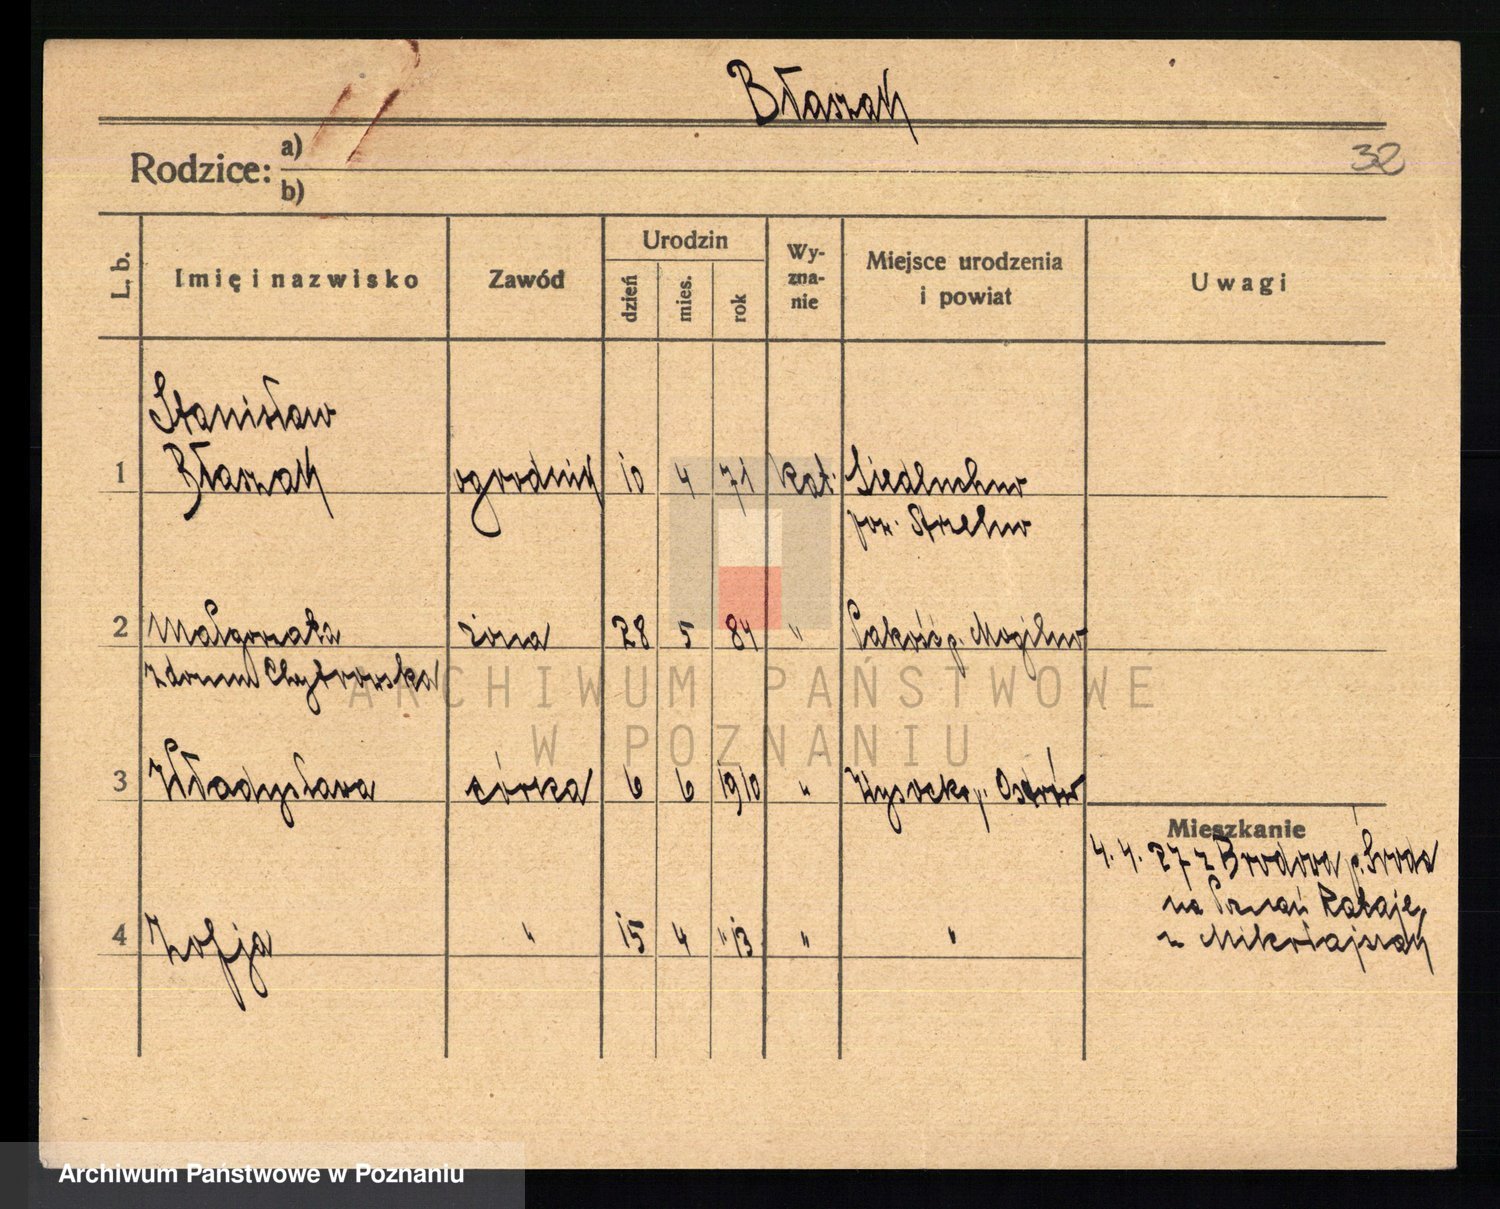 Błaszak
32
Rodzice: a)
b)
L. b.
Imię i nazwisko
Zawód
Urodzin
dzień
mies.
rok
Wy-
zna-
nie
Miejsce urodzenia
i powiat
Uwagi
Stanisław
1 Błaszak ogrodnik 10 4 71 kat. Siedluchno
pow. Strzelno
2 Małgorzata żona 28 5 84 " Pakość p. Mogilno
z domu Chybrowska
3 Władysława córka 6 6 1910 " Wysocko p. Ostrów
Mieszkanie
4. 4. 27 z Brodowa p. Środa
na Poznań Rataje,
4 Zofja " 15 4 " 13 " "
u Mikołajczak
ARCHIWUM PAŃSTWOWE
W POZNANIU
Archiwum Państwowe w Poznaniu